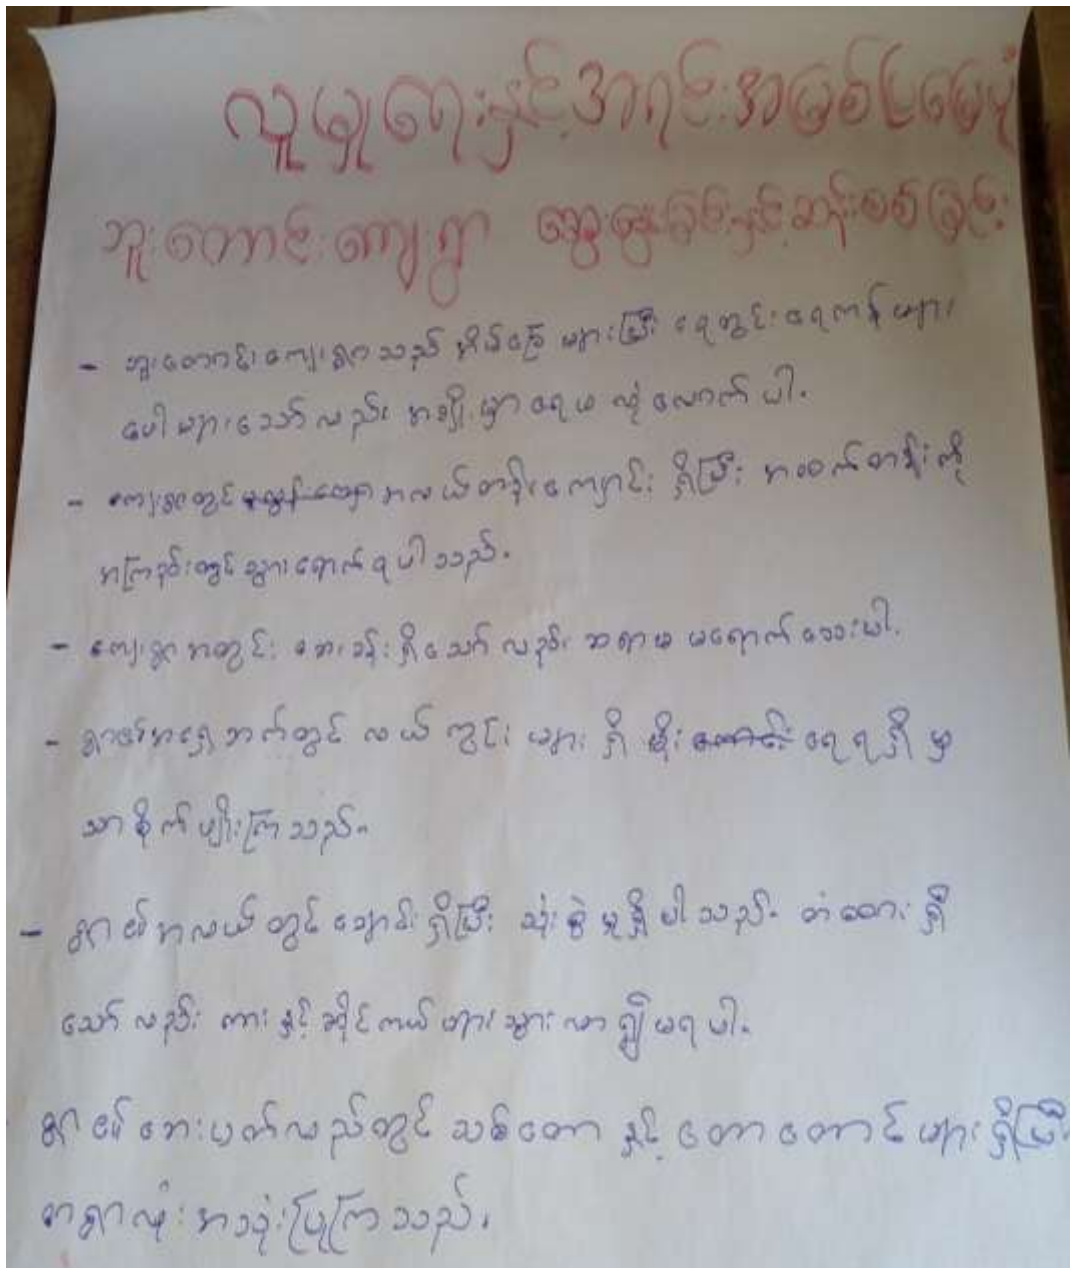 လူမှုရေးနှင့်အရင်းအမြစ်ပြမြေပုံ
ဘူးတောင်းကျေးရွာ ဆွေးနွေးခြင်းနှင့်ဆန်းစစ်ခြင်း
- ဘူးတောင်းကျေးရွာသည် အိမ်ခြေ များပြီး ရေတွင်းရေကန်များ
ပေါများသော်လည်း အချို့မှာရေမလုံလောက်ပါ။
- ကျေးရွာတွင် အလယ်တန်းကျောင်း ရှိပြီး အထက်တန်းကို
အကြည်းတွင်သွားရောက်ရပါသည်။
- ကျေးရွာအတွင်း ဆေးခန်းရှိသော်လည်း ဆရာမ မရောက်သေးပါ။
- ရွာ၏အရှေ့ဘက်တွင် လယ်ကွင်းများ ရှိ မိုး ရေရရှိမှ
သာစိုက်ပျိုးကြသည်။
- ရွာ၏အလယ်တွင်ချောင်းရှိပြီး သုံးစွဲမှုရှိပါသည်။ တံတားရှိ
သော်လည်း ကားနှင့်ဆိုင်ကယ်များသွားလာ၍မရပါ။
ရွာ၏ဘေးပတ်လည်တွင် သစ်တော နှင့် တောတောင်များရှိပြီး
တရွာလုံးအသုံးပြုကြသည်။